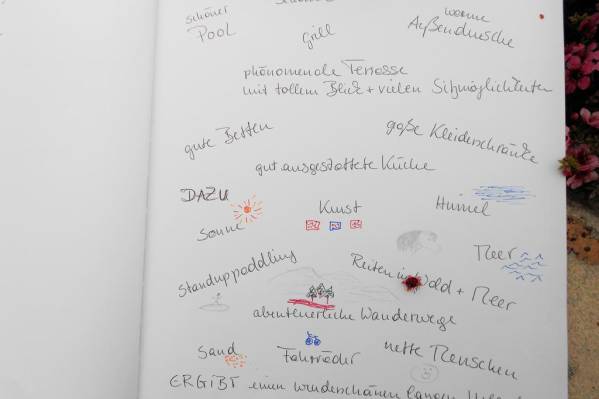 schöner warme
Pool Grill Außendusche
phänomenale Terrasse
mit tollem Blick + vielen Sitzmöglichkeiten
gute Betten große Kleiderschränke
gut ausgestattete Küche
DAZU
Sonne Kunst Himmel
Meer
Standuppaddling Reiten in Wald + Meer
abenteuerliche Wanderwege
Sand Fahrräder nette Menschen
ERGIBT einen wunderschönen langen